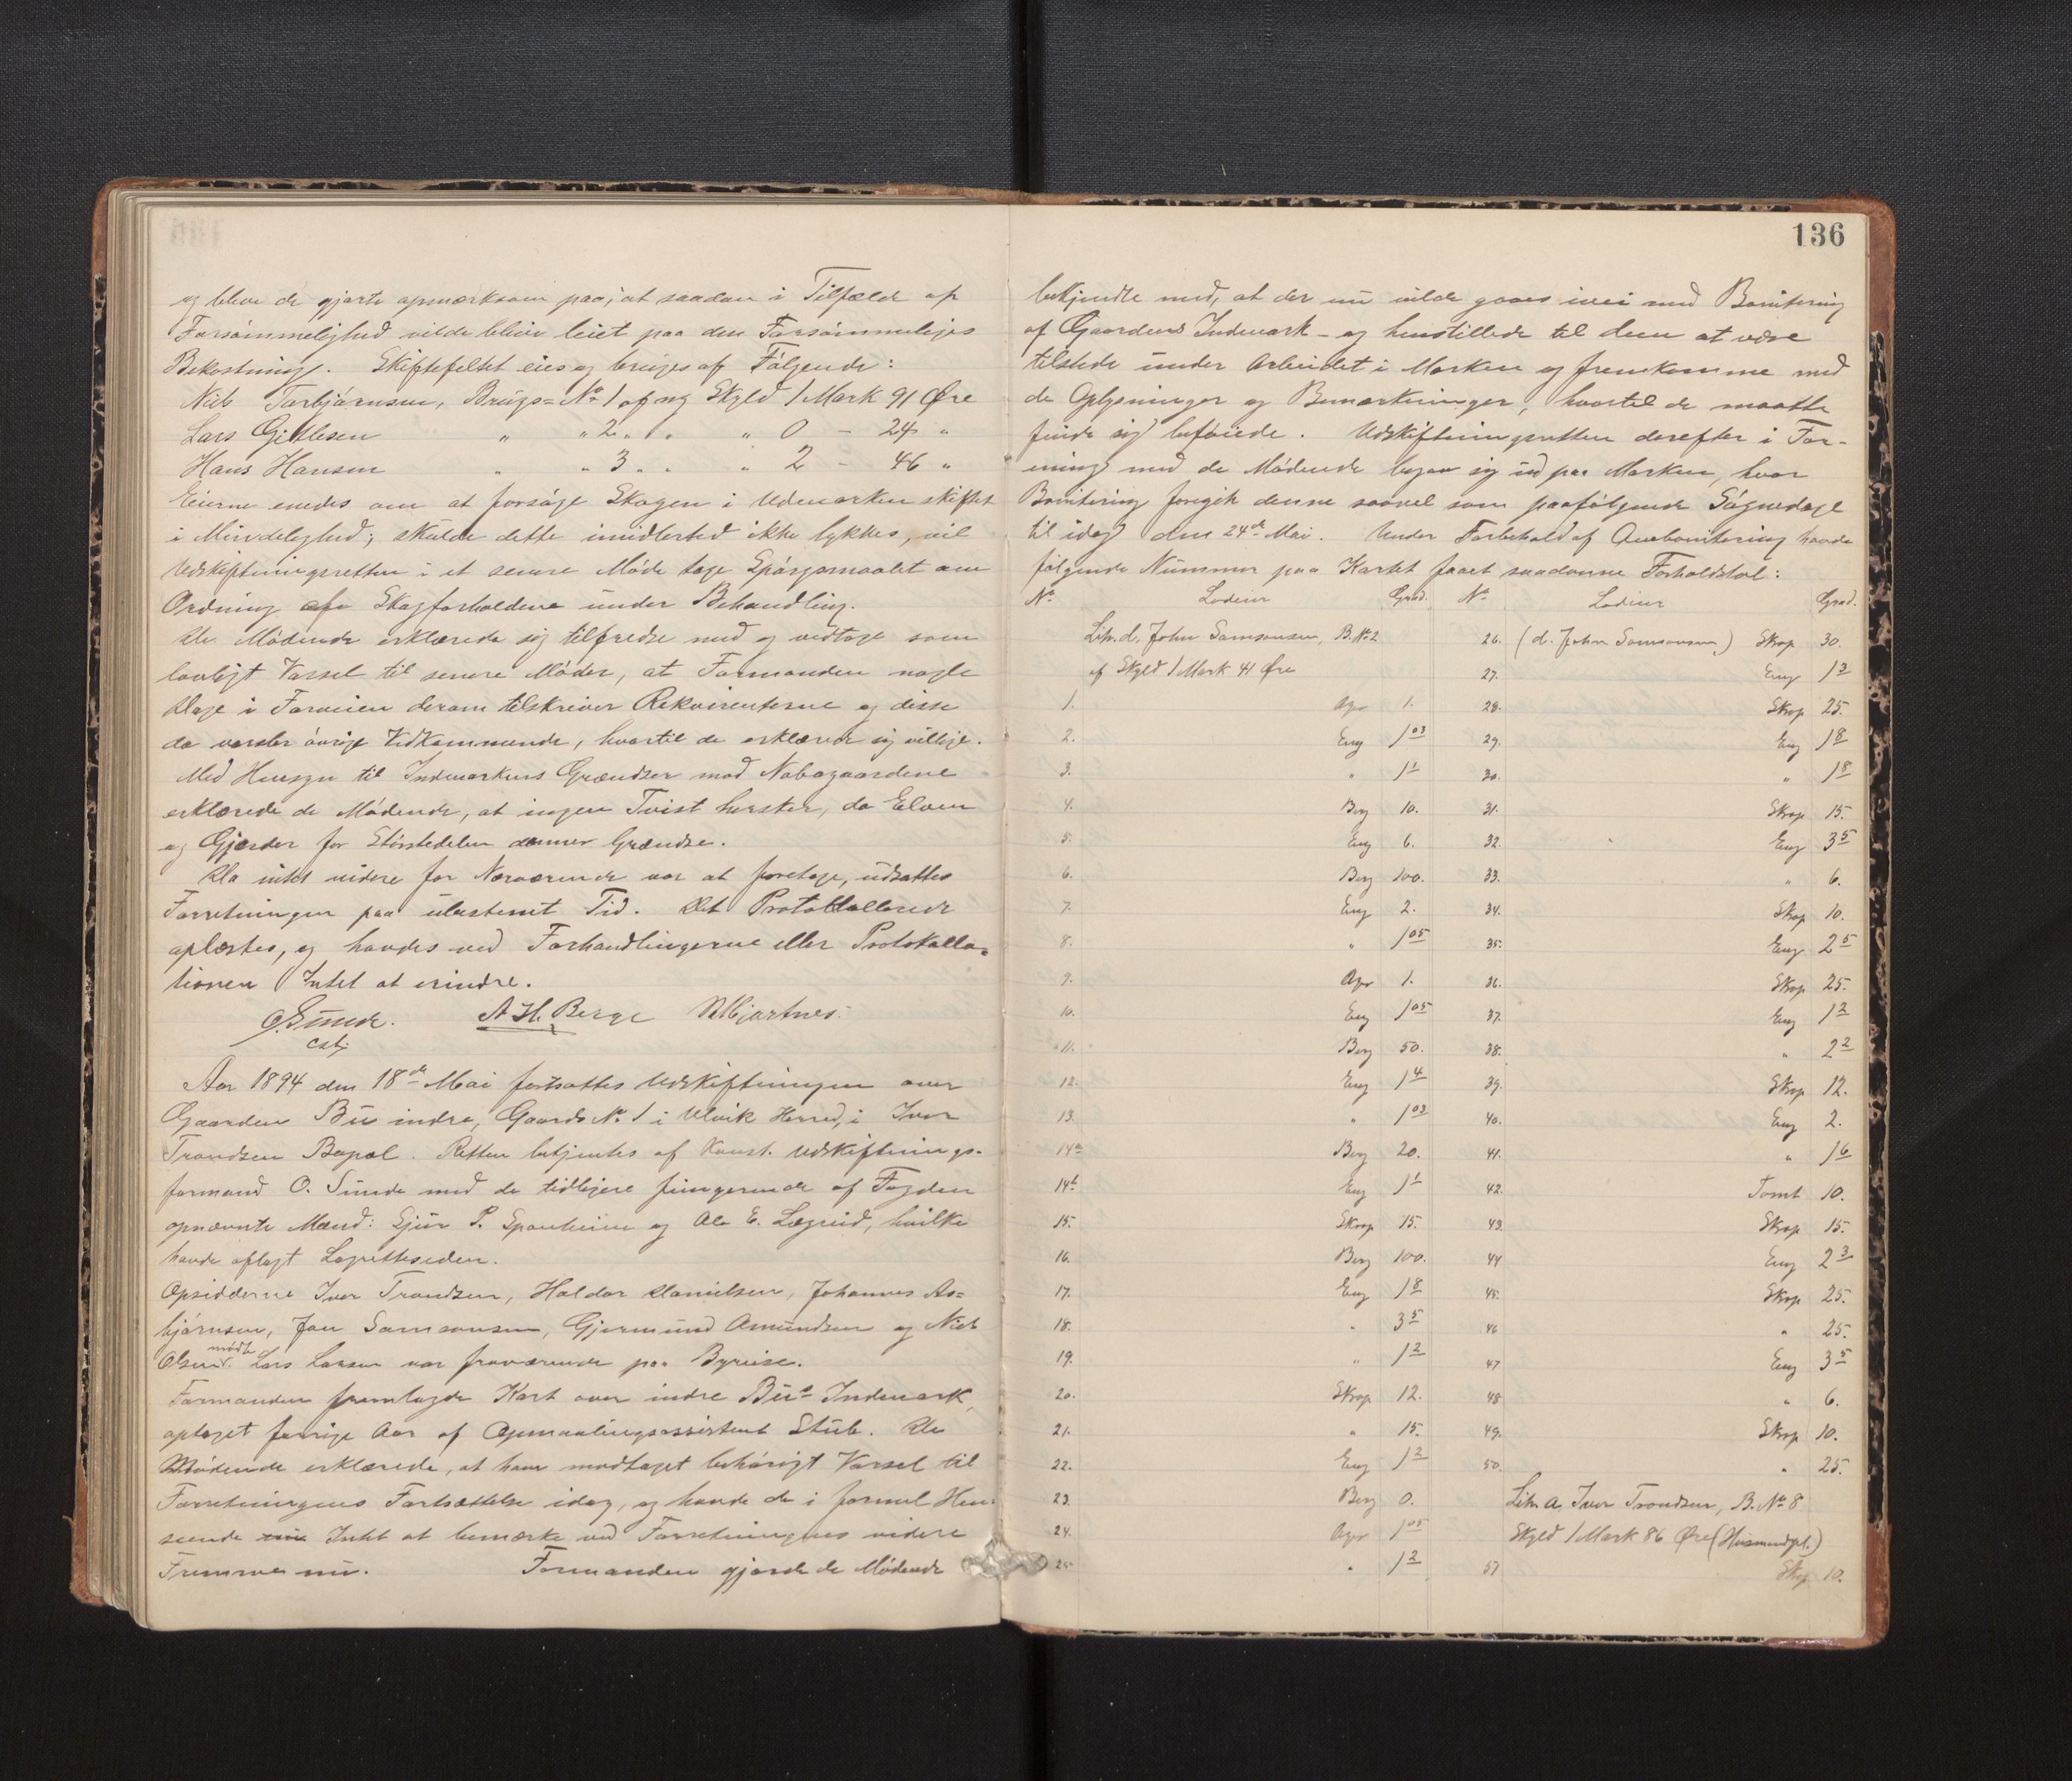 og bleve de gjorte opmærksom paa, at saadan i Tilfælde af
Forsømmelighed vilde blive leiet paa den Forsømmeliges
Bekostning. Skiftefeltet eies og bruges af Følgende:
Niels Torbjørnsen, Brugs=No 1 af ny Skyld 1 Mark 91 Øre
Lars Gitlesen " " 2 " " " 0 - 24 "
Hans Hansen " " 3 " " " 2 - 46 "
Eierne enedes om at forsøge Skogen i Udmarken skiftet
i Mindelighed; skulde dette imidlertid ikke lykkes, vil
Udskiftningsretten i et senere Møde tage Spørgsmaalet om
Ordning af Skogforholdene under Behandling.
De Mødende erklærede sig tilfredse med og vedtoge som
lovligt Varsel til senere Møder, at Formanden nogle
Dage i Forveien derom tilskriver Rekvirenterne og disse
da varsler øvrige Vedkommende, hvortil de erklærede sig villige.
Med Hensyn til Indmarkens Grændser mod Nabogaardene
erklærede de Mødende, at ingen Tvist hersker, da Elven
og Gjerder for Størstedelen danner Grændse.
Da intet videre for Nærværende var at foretage, udsattes
Forretningen paa ubestemt Tid. Det Protokollerede
oplæstes, og havdes ved Forhandlingerne eller Protokolla=
tionen Intet at erindre.
O. Sunde. A. H. Berge
cst.
Aar 1894 den 18de Mai fortsattes Udskiftningen over
Gaarden Bu indre, Gaards No 1 i Ulvik Herred, i Iver
Trondsen Bopæl. Retten betjentes af Konst. Udskiftnings-
formand O. Sunde med de tidligere fungerende af Fogden
opnævnte Mænd: Sjur P. Sponheim og Ole E. Lægreid, hvilke
havde aflagt Lagretteseden.
Opsidderne Iver Trondsen, Haldor Danielsen, Johannes As=
bjørnsen, Jon Samsonsen, Gjermund Amundsen og Niels
mødte
Olsen. Lars Larsen var fraværende paa Byreise.
Formanden fremlagde Kart over indre Bus Indmark,
optaget forrige Aar af Opmaalingsassistent Stub. De
Mødende erklærede, at have modtaget behørigt Varsel til
Forretningens Fortsættelse idag, og havde de i formel Hen-
seende Intet at bemærke ved Forretningens videre
Fremme nu. Formanden gjorde de Mødende
136
bekjendte med, at der nu vilde gaaes ivei med Bonitering
af Gaardens Indmark - og henstillede til dem at være
tilstede under Arbeidet i Marken og fremkomme med
de Oplysninger og Bemærkninger, hvortil de maatte
finde sig beføiede. Udskiftningsretten derefter i For-
ening med de Mødende begav sig ud paa Marken, hvor
Bonitering foregik denne saavel som paafølgende Søgnedage
til idag den 24de Mai. Under Forbehold af Ombonitering havde
følgende Nummer paa Kartet faaet saadanne Forholdstal:
No Lodeier Grad. No Lodeier Grad.
Litr. d. John Samsonsen, B.No 2 26. (d. John Samsonsen) Skog 30.
af Skyld 1 Mark 41 Øre 27. Eng 1 3
1. Ager 1. 28. Skog 25.
2. Eng 1 03 29. Eng 1 8
3. " 1 1 30. " 1 8
4. Berg 10. 31. Skog 15.
5. Eng 6. 32. Eng 3 5
6. Berg 100. 33. " 6.
7. Eng 2. 34. Skog 10.
8. " 1 05 35. Eng 2 5
9. Ager 1. 36. Skog 25.
10. Eng 1 05 37. Eng 1 2
11. Berg 50. 38. " 2 2
12. Eng 1 4 39. Skog 12.
13. " 1 03 40. Eng 2.
14a Berg 20. 41. " 1 6
14b Eng 1 1 42. Tomt 10.
15. Skog 15. 43. Skog 15.
16. Berg 100. 44 Eng 2 3
17. Eng 1 8 45. Skog 25.
18. " 3 5 46 " 25.
19. " 1 2 47 Eng 3 5
20. Skog 12. 48 " 6.
21. " 15. 49. Skog 10.
22. Eng 1 2 50. " 25.
23. Berg 0. Litr. a. Iver Trondsen, B. No 8
24. Ager 1 05 Skyld 1 Mark 86 Øre (Husmandspl.)
25 " 1 2 51 Skog 10.